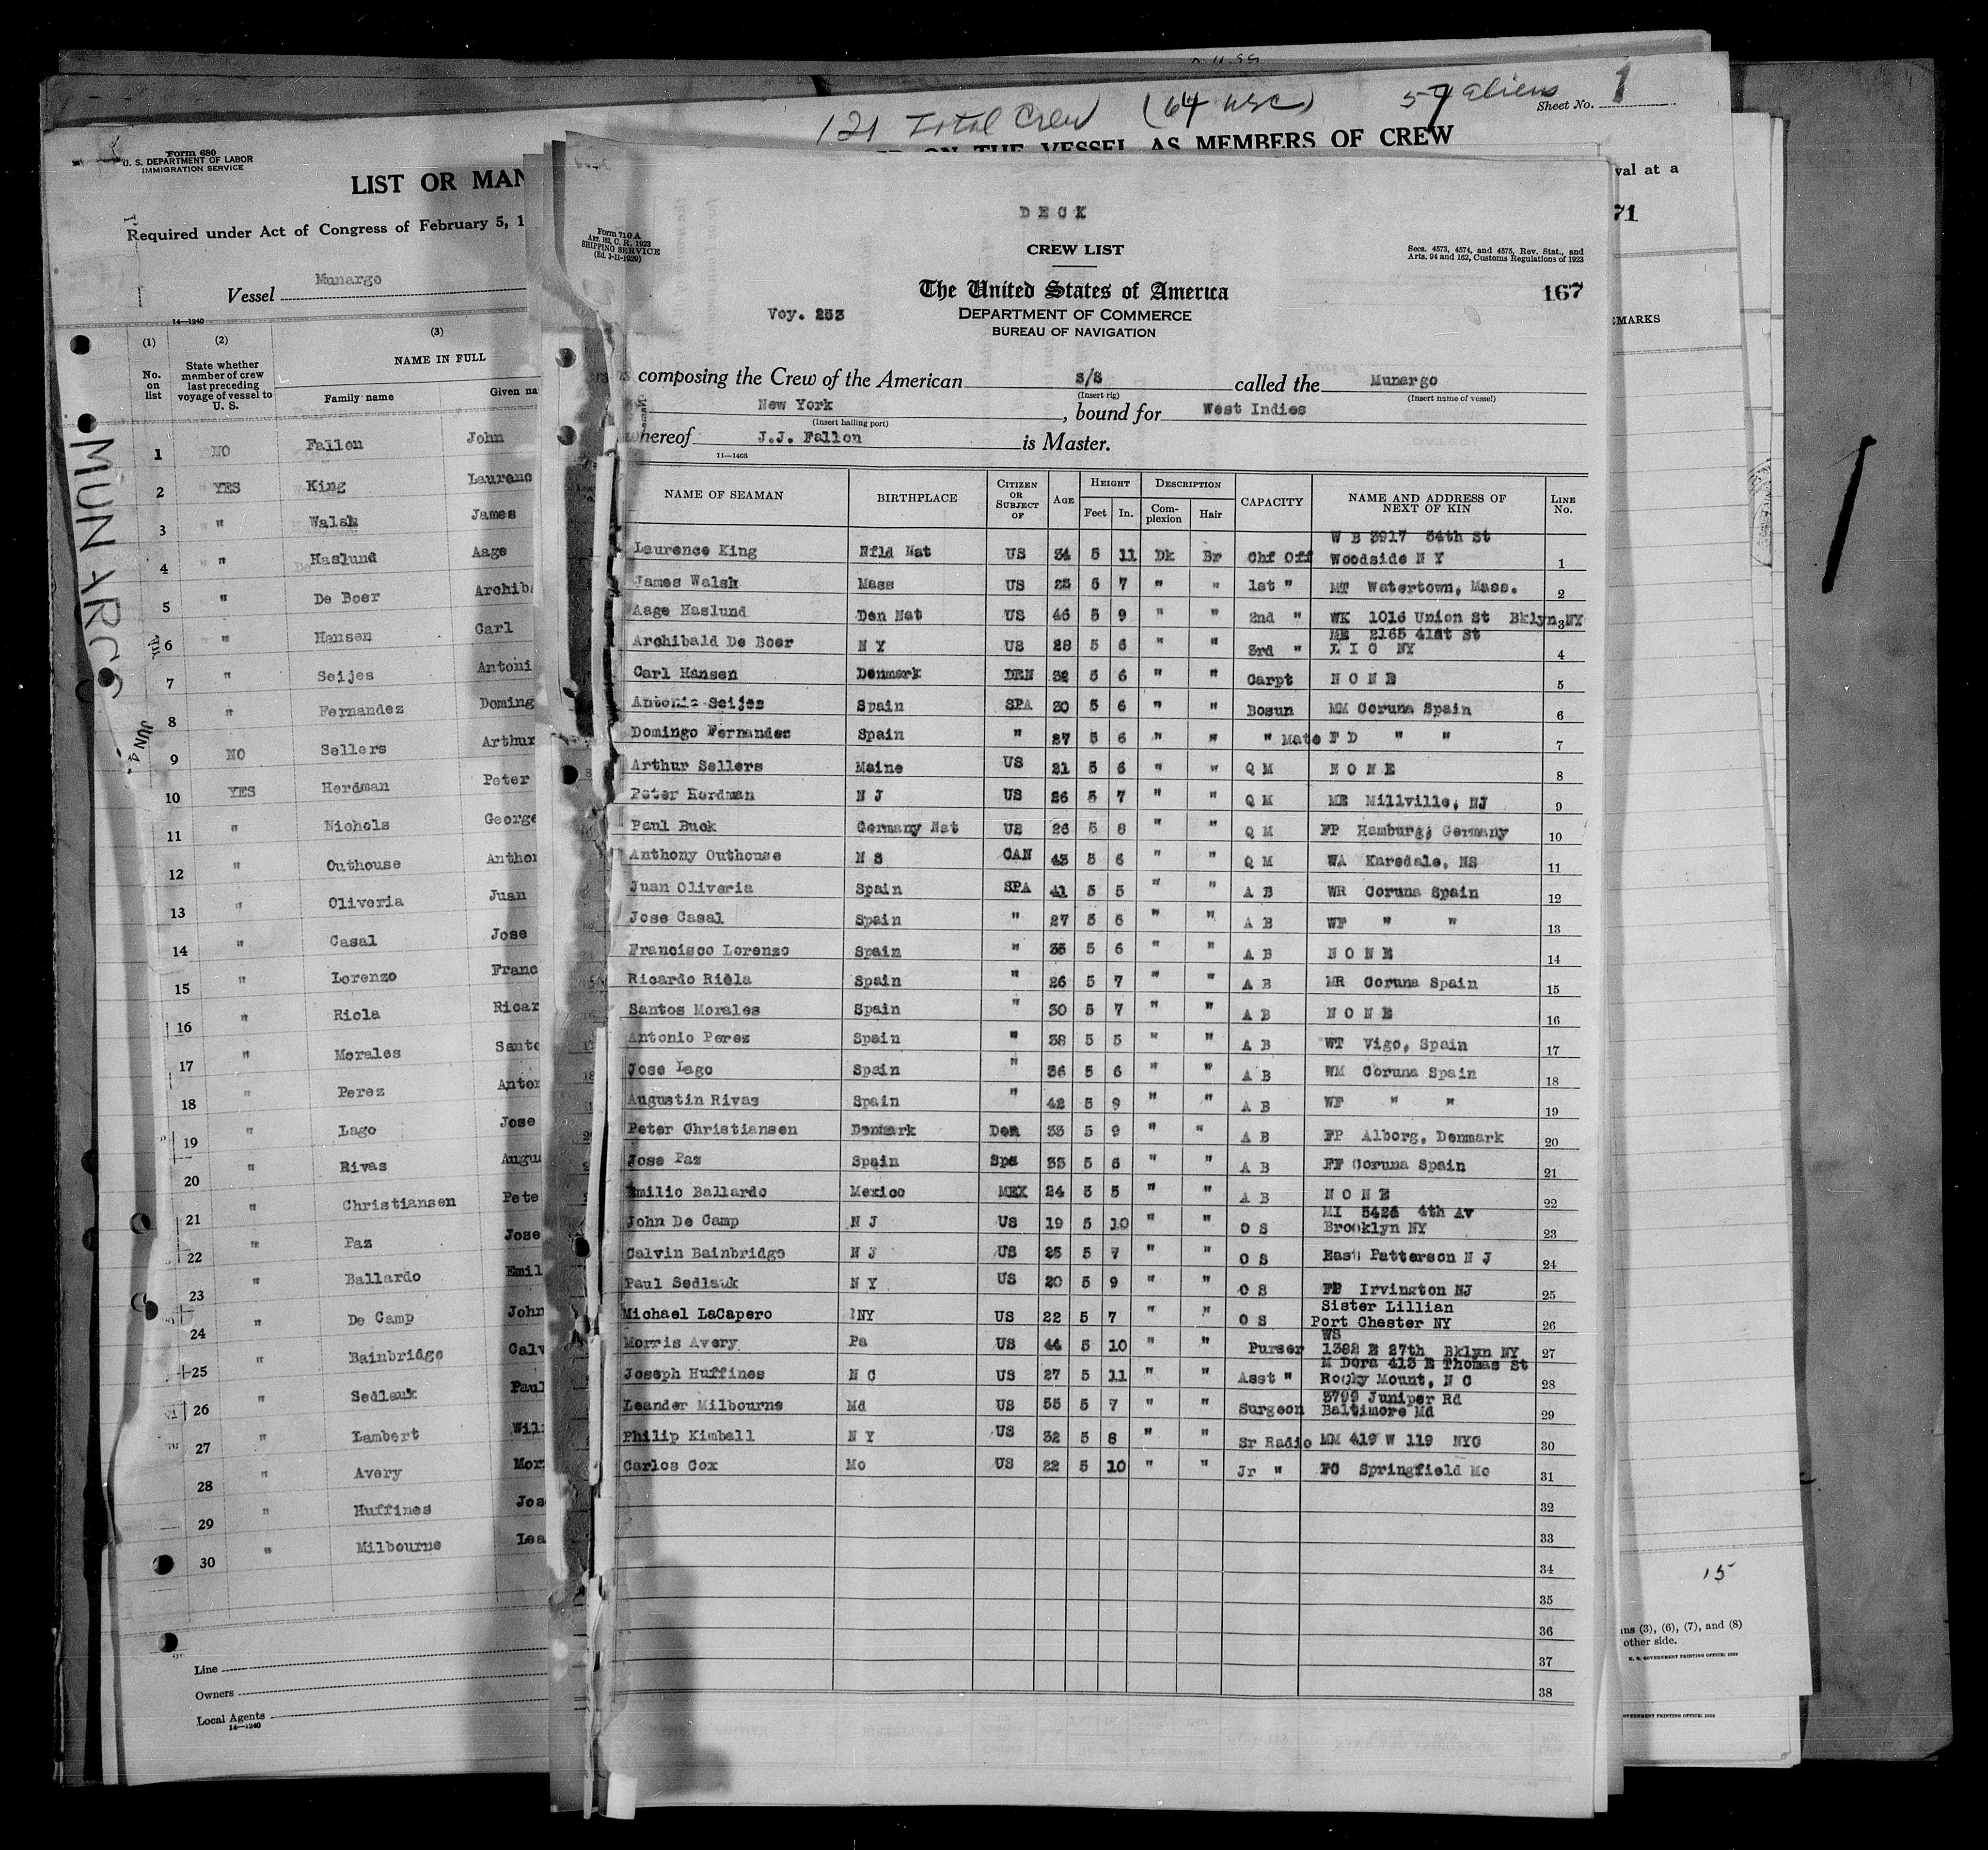 121 Total Crew (64 usc) 57 aliens
Sheet No. 1
ON THE VESSEL AS MEMBERS OF CREW
val at a
71
EMARKS
15
ns (3), (6), (7), and (8)
other side.
U. S. GOVERNMENT PRINTING OFFICE: 1929
Form 680
U. S. DEPARTMENT OF LABOR
IMMIGRATION SERVICE
LIST OR MAN
Required under Act of Congress of February 5, 1
Vessel Munargo
14—1240
(1) (2) (3)
No. on list
State whether member of crew last preceding voyage of vessel to U. S.
NAME IN FULL
Family name Given na
MUNARGO
JUN 4
1 NO Fallon John
2 YES King Laurenc
3 " Walsh James
4 " Haslund Aage
5 " De Boer Archiba
6 " Hansen Carl
7 " Seijes Antoni
8 " Fernandez Doming
9 NO Sellers Arthur
10 YES Herdman Peter
11 " Nichols George
12 " Outhouse Anthon
13 " Oliveria Juan
14 " Casal Jose
15 " Lorenzo Franc
16 " Riola Ricar
17 " Morales Santo
18 " Perez Anton
19 " Lago Jose
20 " Rivas Augu
21 " Christiansen Pete
22 " Paz Jose
23 " Ballardo Emil
24 " De Camp John
25 " Bainbridge Calv
26 " Sedlauk Paul
27 " Lambert Wil
28 " Avery Mor
29 " Huffines Jos
30 " Milbourne Lea
Line
Owners
Local Agents
14—1240
DECK
Form 710 A
Art. 162, C. R., 1923
SHIPPING SERVICE
(Ed. 3-11-1929)
CREW LIST
Secs. 4573, 4574, and 4575, Rev. Stat., and
Arts. 94 and 162, Customs Regulations of 1923
The United States of America
167
Voy. 253
DEPARTMENT OF COMMERCE
BUREAU OF NAVIGATION
composing the Crew of the American S/S called the Munargo
(Insert rig) (Insert name of vessel)
New York, bound for West Indies
(Insert hailing port)
whereof J.J. Fallon is Master.
11—1468
NAME OF SEAMAN BIRTHPLACE CITIZEN OR SUBJECT OF AGE HEIGHT Feet In. DESCRIPTION Complexion Hair CAPACITY NAME AND ADDRESS OF NEXT OF KIN LINE No.
W B 3917 54th St
Laurence King Nfld Nat US 34 5 11 Dk Br Chf Off Woodside N Y 1
James Walsh Mass US 25 5 7 " " 1st " MT Watertown, Mass. 2
Aage Haslund Den Nat US 46 5 9 " " 2nd " WK 1016 Union St Bklyn NY 3
ME 2165 41st St
Archibald De Boer N Y US 28 5 6 " " 3rd " L I C NY 4
Carl Hansen Denmark DEN 32 5 6 " " Carpt N O N E 5
Antonio Seijes Spain SPA 30 5 6 " " Bosun MM Coruna Spain 6
Domingo Fernandes Spain " 27 5 6 " " " Mate F D " " 7
Arthur Sellers Maine US 21 5 6 " " Q M N O N E 8
Peter Herdman N J US 26 5 7 " " Q M ME Millville, NJ 9
Paul Buck Germany Nat US 26 5 8 " " Q M FP Hamburg, Germany 10
Anthony Outhouse N S CAN 43 5 6 " " Q M WA Karsdale, NS 11
Juan Oliveria Spain SPA 41 5 5 " " A B WR Coruna Spain 12
Jose Casal Spain " 27 5 6 " " A B WF " " 13
Francisco Lorenzo Spain " 35 5 6 " " A B N O N E 14
Ricardo Riela Spain " 26 5 7 " " A B MR Coruna Spain 15
Santos Morales Spain " 30 5 7 " " A B N O N E 16
Antonio Perez Spain " 38 5 5 " " A B WT Vigo, Spain 17
Jose Lago Spain " 36 5 6 " " A B WM Coruna Spain 18
Augustin Rivas Spain " 42 5 9 " " A B WF " " 19
Peter Christiansen Denmark Den 33 5 9 " " A B FP Alborg, Denmark 20
Jose Paz Spain Spa 33 5 6 " " A B FF Coruna Spain 21
Emilio Ballardo Mexico MEX 24 5 5 " " A B N O N E 22
MI 5426 4th Av
John De Camp N J US 19 5 10 " " O S Brooklyn NY 23
Calvin Bainbridge N J US 25 5 7 " " O S East Patterson N J 24
Paul Sedlauk N Y US 20 5 9 " " O S FP Irvington NJ 25
Sister Lillian
Michael LaCapero NY US 22 5 7 " " O S Port Chester NY 26
WS
Morris Avery Pa US 44 5 10 " " Purser 1382 E 27th Bklyn NY 27
M Dora 413 E Thomas St
Joseph Huffines N C US 27 5 11 " " Asst " Rocky Mount, N C 28
3799 Juniper Rd
Leander Milbourne Md US 55 5 7 " " Surgeon Baltimore Md 29
Philip Kimball N Y US 32 5 8 " " Sr Radio MM 419 W 119 NYC 30
Carlos Cox Mo US 22 5 10 " " Jr " FC Springfield Mo 31
32
33
34
35
36
37
38